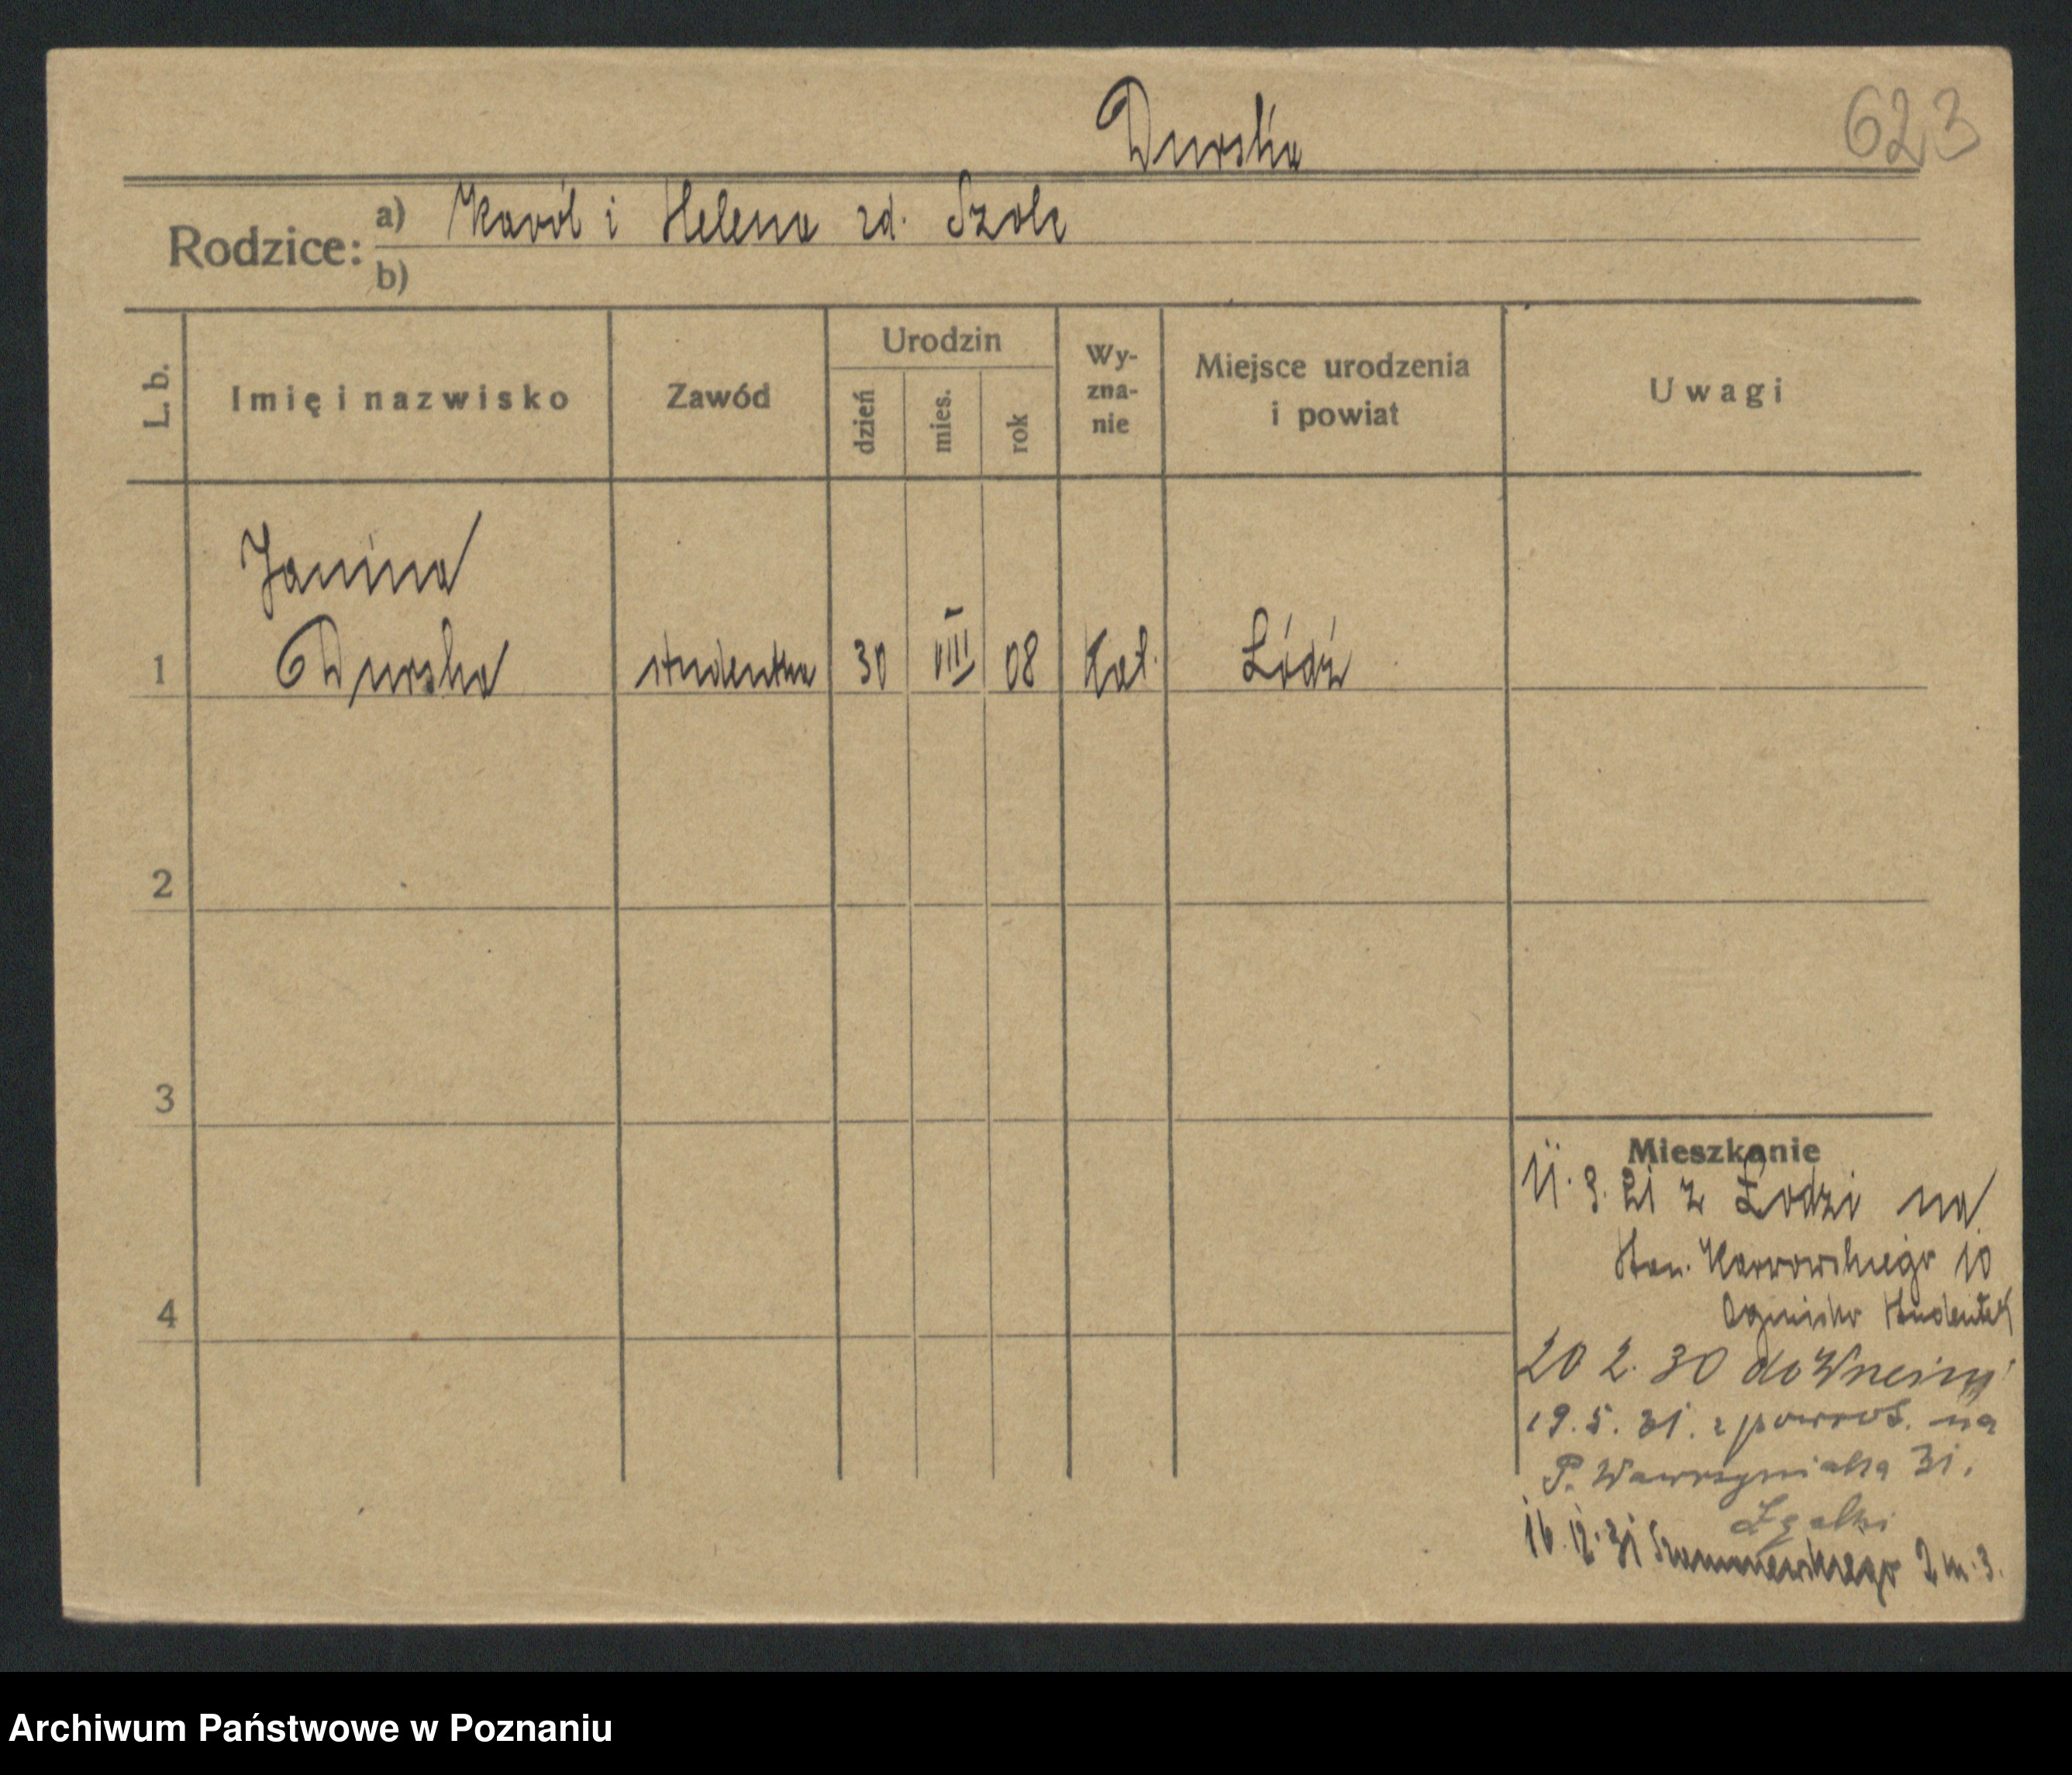 Durska
623
Rodzice: a) Karól i Helena zd. Szolc
b)
L. b. Imię i nazwisko Zawód Urodzin dzień mies. rok Wy-zna-nie Miejsce urodzenia i powiat Uwagi
Janina
1 Durska studentka 30 VIII 08 Kat. Łódź
2
3
Mieszkanie
z Łodzi na
Stan. Karwowskiego 10
Ognisko Studentek
4
20 2. 30 do
19. 5. 31. z powrot. na
P. Wawrzyniaka 31.
16. 12. 31 2 m. 3.
Archiwum Państwowe w Poznaniu